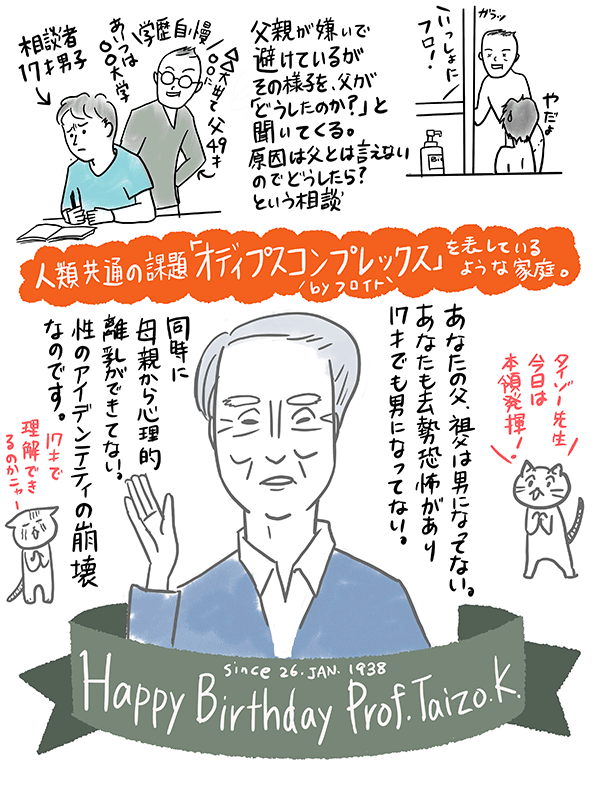 相談者
17才男子
学歴自慢
あいつは
〇〇大学
△△大出て
〇〇に
父49才
父親が嫌いで
避けているが
その様子を、父が
「どうしたのか?」と
聞いてくる。
原因は父とは言えない
のでどうしたら?
という相談
ガラッ
いっしょに
フロ!
やだよ
人類共通の課題「オディプスコンプレックス」を表している
ような家庭。
by フロイト
あなたの父、祖父は男になってない。
あなたも去勢恐怖があり
17才でも男になってない。
同時に
母親から心理的
離乳ができてない。
性のアイデンティティの崩壊
なのです。
タイゾー先生
今日は
本領発揮!
17才で
理解でき
るのかニャー
since 26. JAN. 1938
Happy Birthday Prof. Taizo. K.